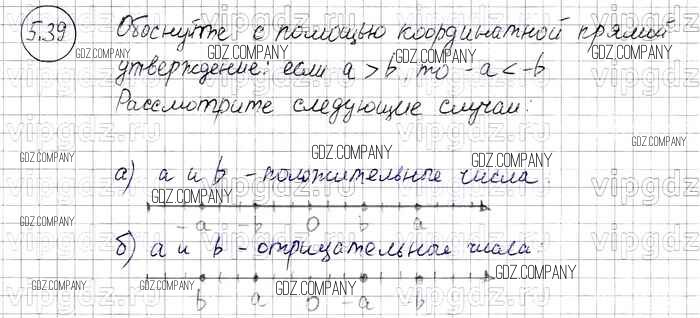 5.39 Обоснуйте с помощью координатной прямой
GDZ.COMPANY GDZ.COMPANY GDZ.COMPANY
утверждение: если a > b, то -a < -b
Рассмотрите следующие случаи:
vipgdz.ru vipgdz.ru vipgdz.ru
GDZ.COMPANY GDZ.COMPANY
GDZ.COMPANY
а) a и b - положительные числа:
vipgdz vipgdz.ru vipgdz.ru
GDZ.COMPANY GDZ.COMPANY GDZ.COMPANY
-a -b 0 b a
б) a и b - отрицательные числа:
GDZ.COMPANY
GDZ.COMPANY GDZ.COMPANY GDZ.COMPANY
b a 0 -a -b
vipgdz.ru vipgdz.ru vipgdz.ru